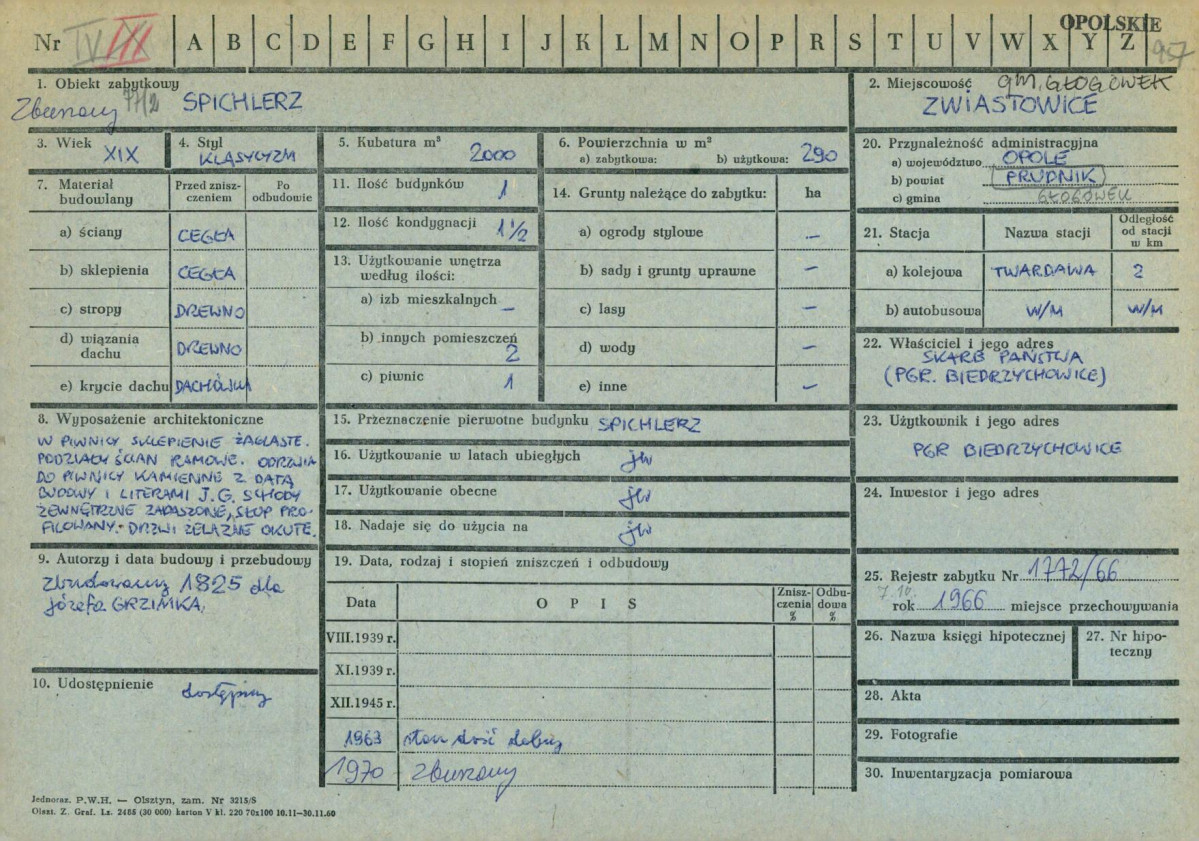 OPOLSKIE
Nr IV III A B C D E F G H I J K L M N O P R S T U V W X Y Z 957
1. Obiekt zabytkowy
Zburzony SPICHLERZ
2. Miejscowość gm. GŁOGÓWEK
ZWIASTOWICE
3. Wiek XIX
4. Styl KLASYCYZM
5. Kubatura m³ 2000
6. Powierzchnia w m²
a) zabytkowa: b) użytkowa: 290
7. Materiał budowlany
Przed zniszczeniem
Po odbudowie
a) ściany CEGŁA
b) sklepienia CEGŁA
c) stropy DREWNO
d) wiązania dachu DREWNO
e) krycie dachu DACHÓWKA
8. Wyposażenie architektoniczne
W PIWNICY SKLEPIENIE ŻAGLASTE.
PODZIAŁY ŚCIAN RAMOWE. ODRZWIA
DO PIWNICY KAMIENNE Z DATĄ
BUDOWY I LITERAMI J.G. SCHODY
ZEWNĘTRZNE ZADASZONE, SŁUP PRO-
FILOWANY. DRZWI ŻELAZNE OKUTE.
9. Autorzy i data budowy i przebudowy
Zbudowany 1825 dla
Józefa GRZIMKA.
10. Udostępnienie dostępny
11. Ilość budynków 1
12. Ilość kondygnacji 1½
13. Użytkowanie wnętrza
według ilości:
a) izb mieszkalnych –
b) innych pomieszczeń 2
c) piwnic 1
14. Grunty należące do zabytku: ha
a) ogrody stylowe –
b) sady i grunty uprawne –
c) lasy –
d) wody –
e) inne –
15. Przeznaczenie pierwotne budynku SPICHLERZ
16. Użytkowanie w latach ubiegłych jw
17. Użytkowanie obecne jw
18. Nadaje się do użycia na jw
19. Data, rodzaj i stopień zniszczeń i odbudowy
Data OPIS Zniszczenia % Odbudowa %
VIII.1939 r.
XI.1939 r.
XII.1945 r.
1963 stan dość dobry
1970 zburzony
20. Przynależność administracyjna
a) województwo OPOLE
b) powiat PRUDNIK
c) gmina GŁOGÓWEK
21. Stacja Nazwa stacji Odległość od stacji w km
a) kolejowa TWARDAWA 2
b) autobusowa W/M W/M
22. Właściciel i jego adres
SKARB PAŃSTWA
(PGR. BIEDRZYCHOWICE)
23. Użytkownik i jego adres
PGR BIEDRZYCHOWICE
24. Inwestor i jego adres
25. Rejestr zabytku Nr 1772/66
7.10.
rok 1966 miejsce przechowywania
26. Nazwa księgi hipotecznej
27. Nr hipoteczny
28. Akta
29. Fotografie
30. Inwentaryzacja pomiarowa
Jednoraz. P.W.H. — Olsztyn, zam. Nr 3215/S
Olszt. Z. Graf. Lz. 2488 (30 000) karton V kl. 220 70x100 10.11—30.11.60